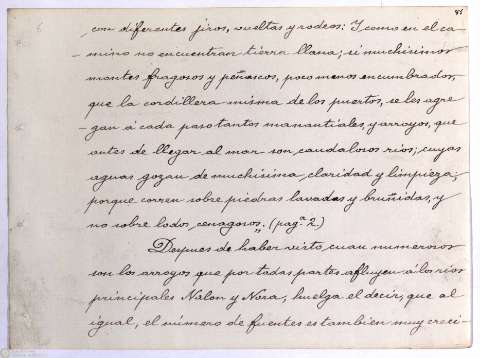 85
con diferentes jiros, vueltas y rodeos: I como en el ca-
-mino no encuentran tierra llana; si muchisimos
montes fragosos y peñascos, poco menos encumbrados,
que la cordillera misma de los puertos, se les agre-
-gan á cada paso tantos manantiales, y arroyos, que
antes de llegar al mar son caudalosos rios; cuyas
aguas gozan de muchisima claridad y limpieza,
porque corren sobre piedras lavadas y bruñidas, y
no sobre lodos cenagosos." (pagª 2.)
Despues de haber visto cuan numerosos
son los arroyos que por todas partes afluyen á los rios
principales Nalon y Nora, huelga el decir, que al
igual, el número de fuentes es tambien muy creci-